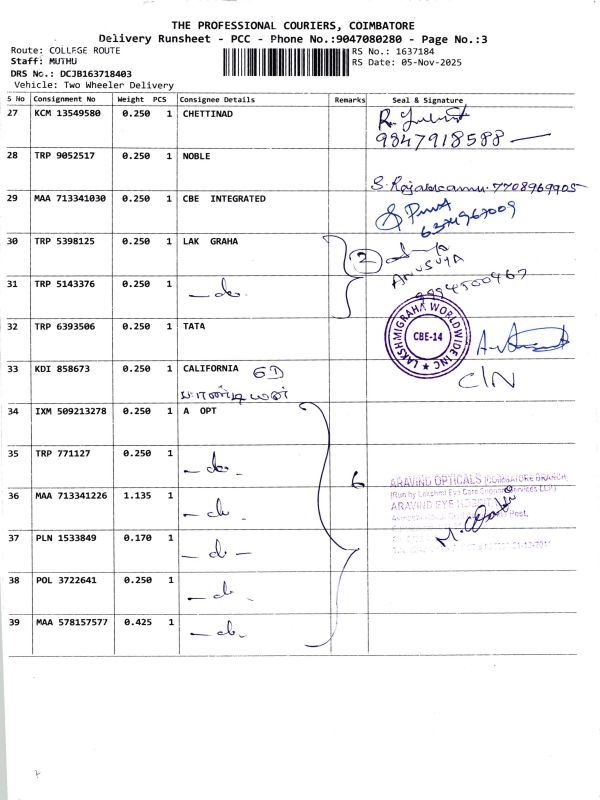 THE PROFESSIONAL COURIERS, COIMBATORE
Delivery Runsheet - PCC - Phone No.:9047080280 - Page No.:3
Route: COLLEGE ROUTE
RS No.: 1637184
Staff: MUTHU
RS Date: 05-Nov-2025
DRS No.: DCJB163718403
Vehicle: Two Wheeler Delivery
S No Consignment No Weight PCS Consignee Details Remarks Seal & Signature
27 KCM 13549580 0.250 1 CHETTINAD
9847918588
28 TRP 9052517 0.250 1 NOBLE
7708969905
29 MAA 713341030 0.250 1 CBE INTEGRATED
6374967009
30 TRP 5398125 0.250 1 LAK GRAHA 2
ANUSUYA
31 TRP 5143376 0.250 1 -do-
9994500467
32 TRP 6393506 0.250 1 TATA
LAKSHMIGRAHA WORLDWIDE INC
CBE-14
33 KDI 858673 0.250 1 CALIFORNIA
C/N
34 IXM 509213278 0.250 1 A OPT
35 TRP 771127 0.250 1 -do-
6
ARAVIND OPTICALS (COIMBATORE BRANCH)
(Run by Lakshmi Eye Care Support Services LLP)
36 MAA 713341226 1.135 1 -do-
ARAVIND EYE HOSPITAL
Post,
37 PLN 1533849 0.170 1 -do-
38 POL 3722641 0.250 1 -do-
39 MAA 578157577 0.425 1 -do-